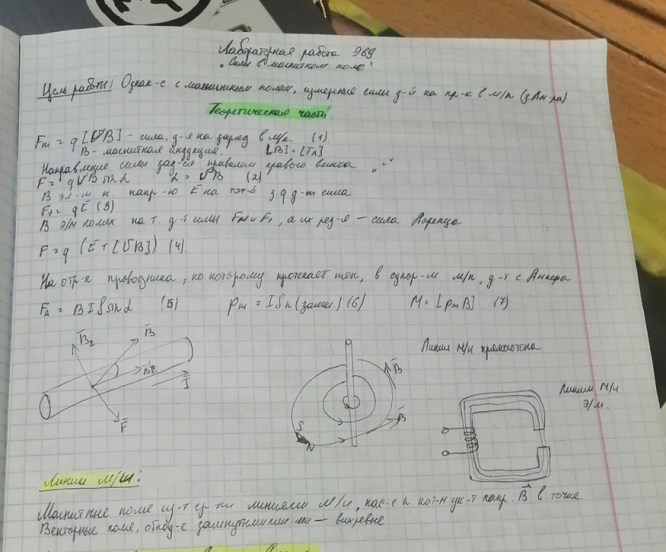 Лабораторная работа 369
"Силы в магнитном поле"
Цель работы: Ознак-е с магнитным полем, измерение силы д-й на пр-к в м/п (з.Ампера)
Теоретическая часть
Fm = q [υB] - сила, д-я на заряд в м/п. (1)
B - магнитная индукция. [B] = [Тл]
Направление силы зад-ся правилом правого винта
F = qυB sin α α = υ^B (2)
В эл-м п. напр-ю E на точ-й з. q д-т сила
F₁ = qE (3)
В э/м полях на т. д-т силы Fm и F₁, а их рез-я — сила Лоренца
F = q (E + [υB]) (4).
На отр-к проводника, по которому протекает ток, в однор-м м/п, д-т с. Ампера
FA = BIl sin α (5) pm = ISn (замк.) (6) M = [pm B] (7)
Линии м/и прямого тока
B₂ B
I
F
B
B
S
N
Линии м/и
э/м.
Линии м/и:
Магнитные поле из-т гр-ки линиями м/и, кас-е к кот-м ук-т напр. B в точке
Векторные поля, облад-е замкнутыми ли-ми — вихревые